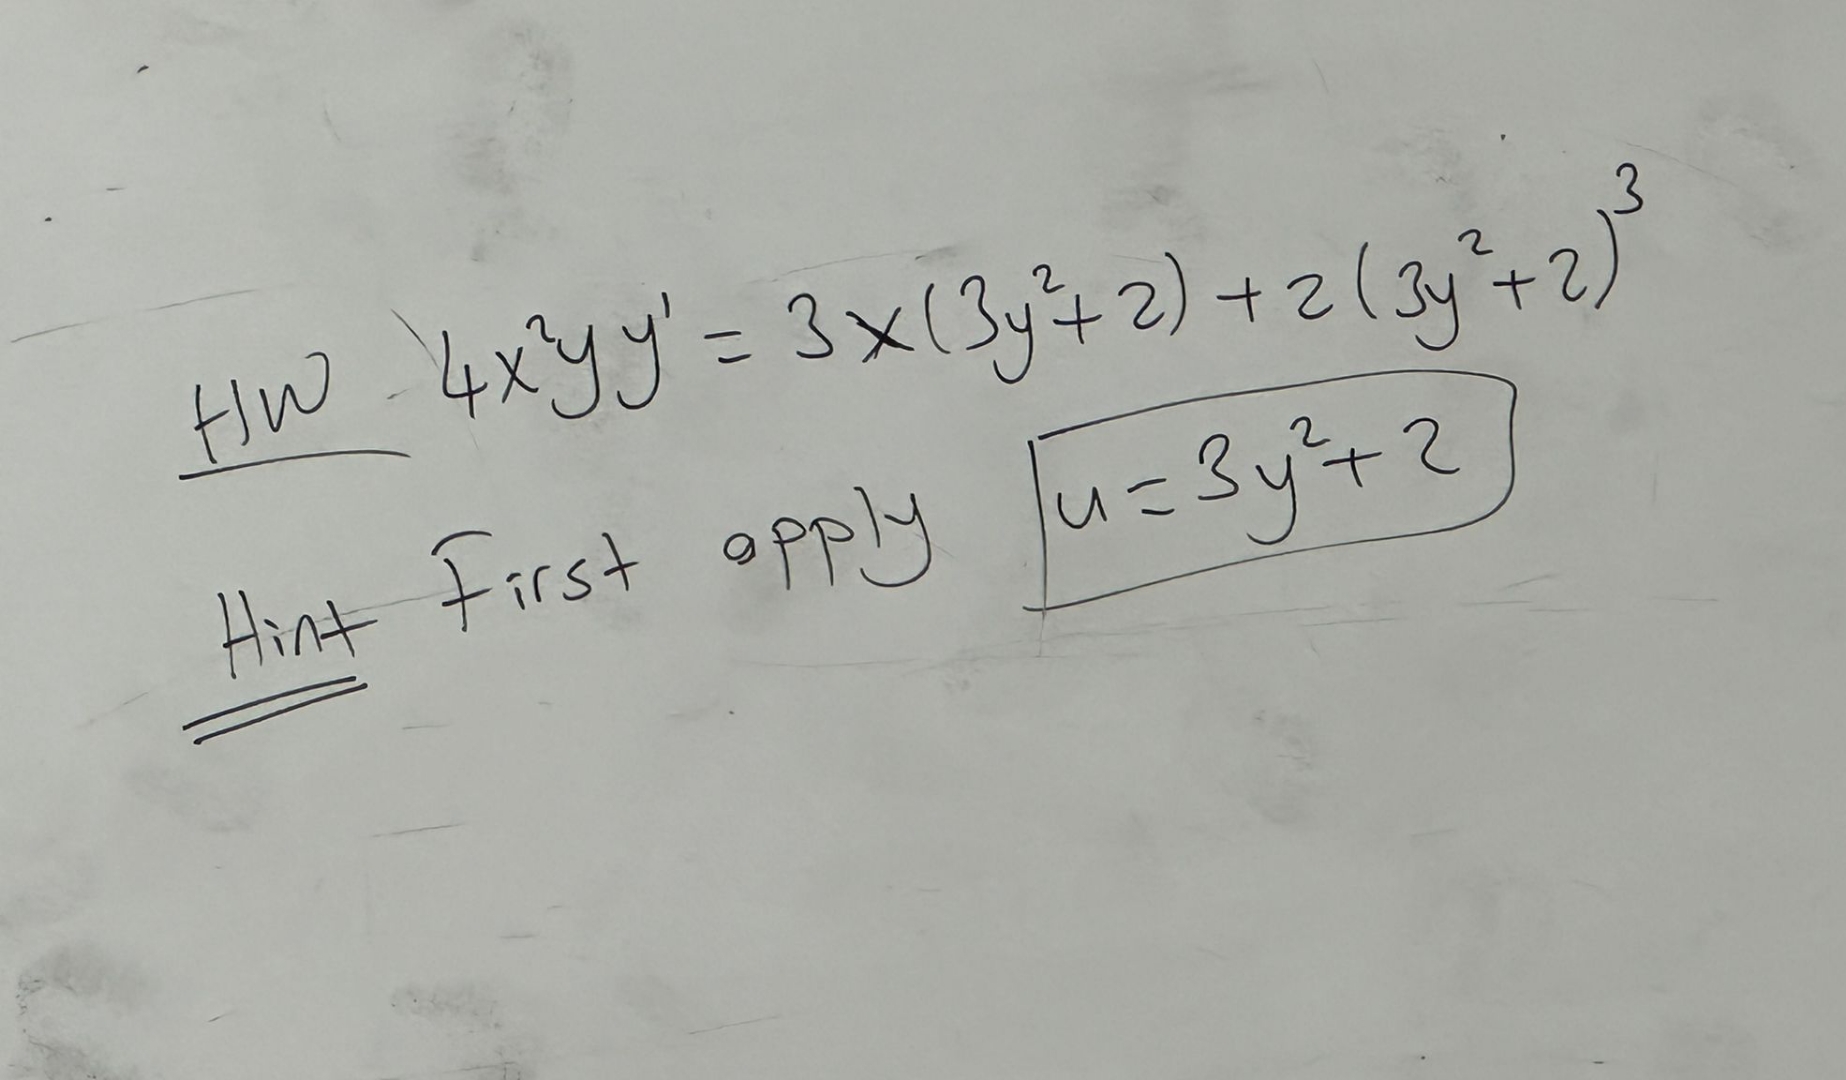 HW 4x²yy' = 3x(3y²+2) + 2(3y²+2)³
Hint First apply u = 3y²+2